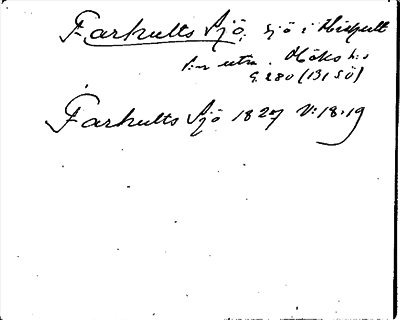 Farhults Sjö. sjö i Hishult
s:n utm. Höks h:d
G. 280 (13 j SÖ)
Farhults Sjö 1827 V: 18.19